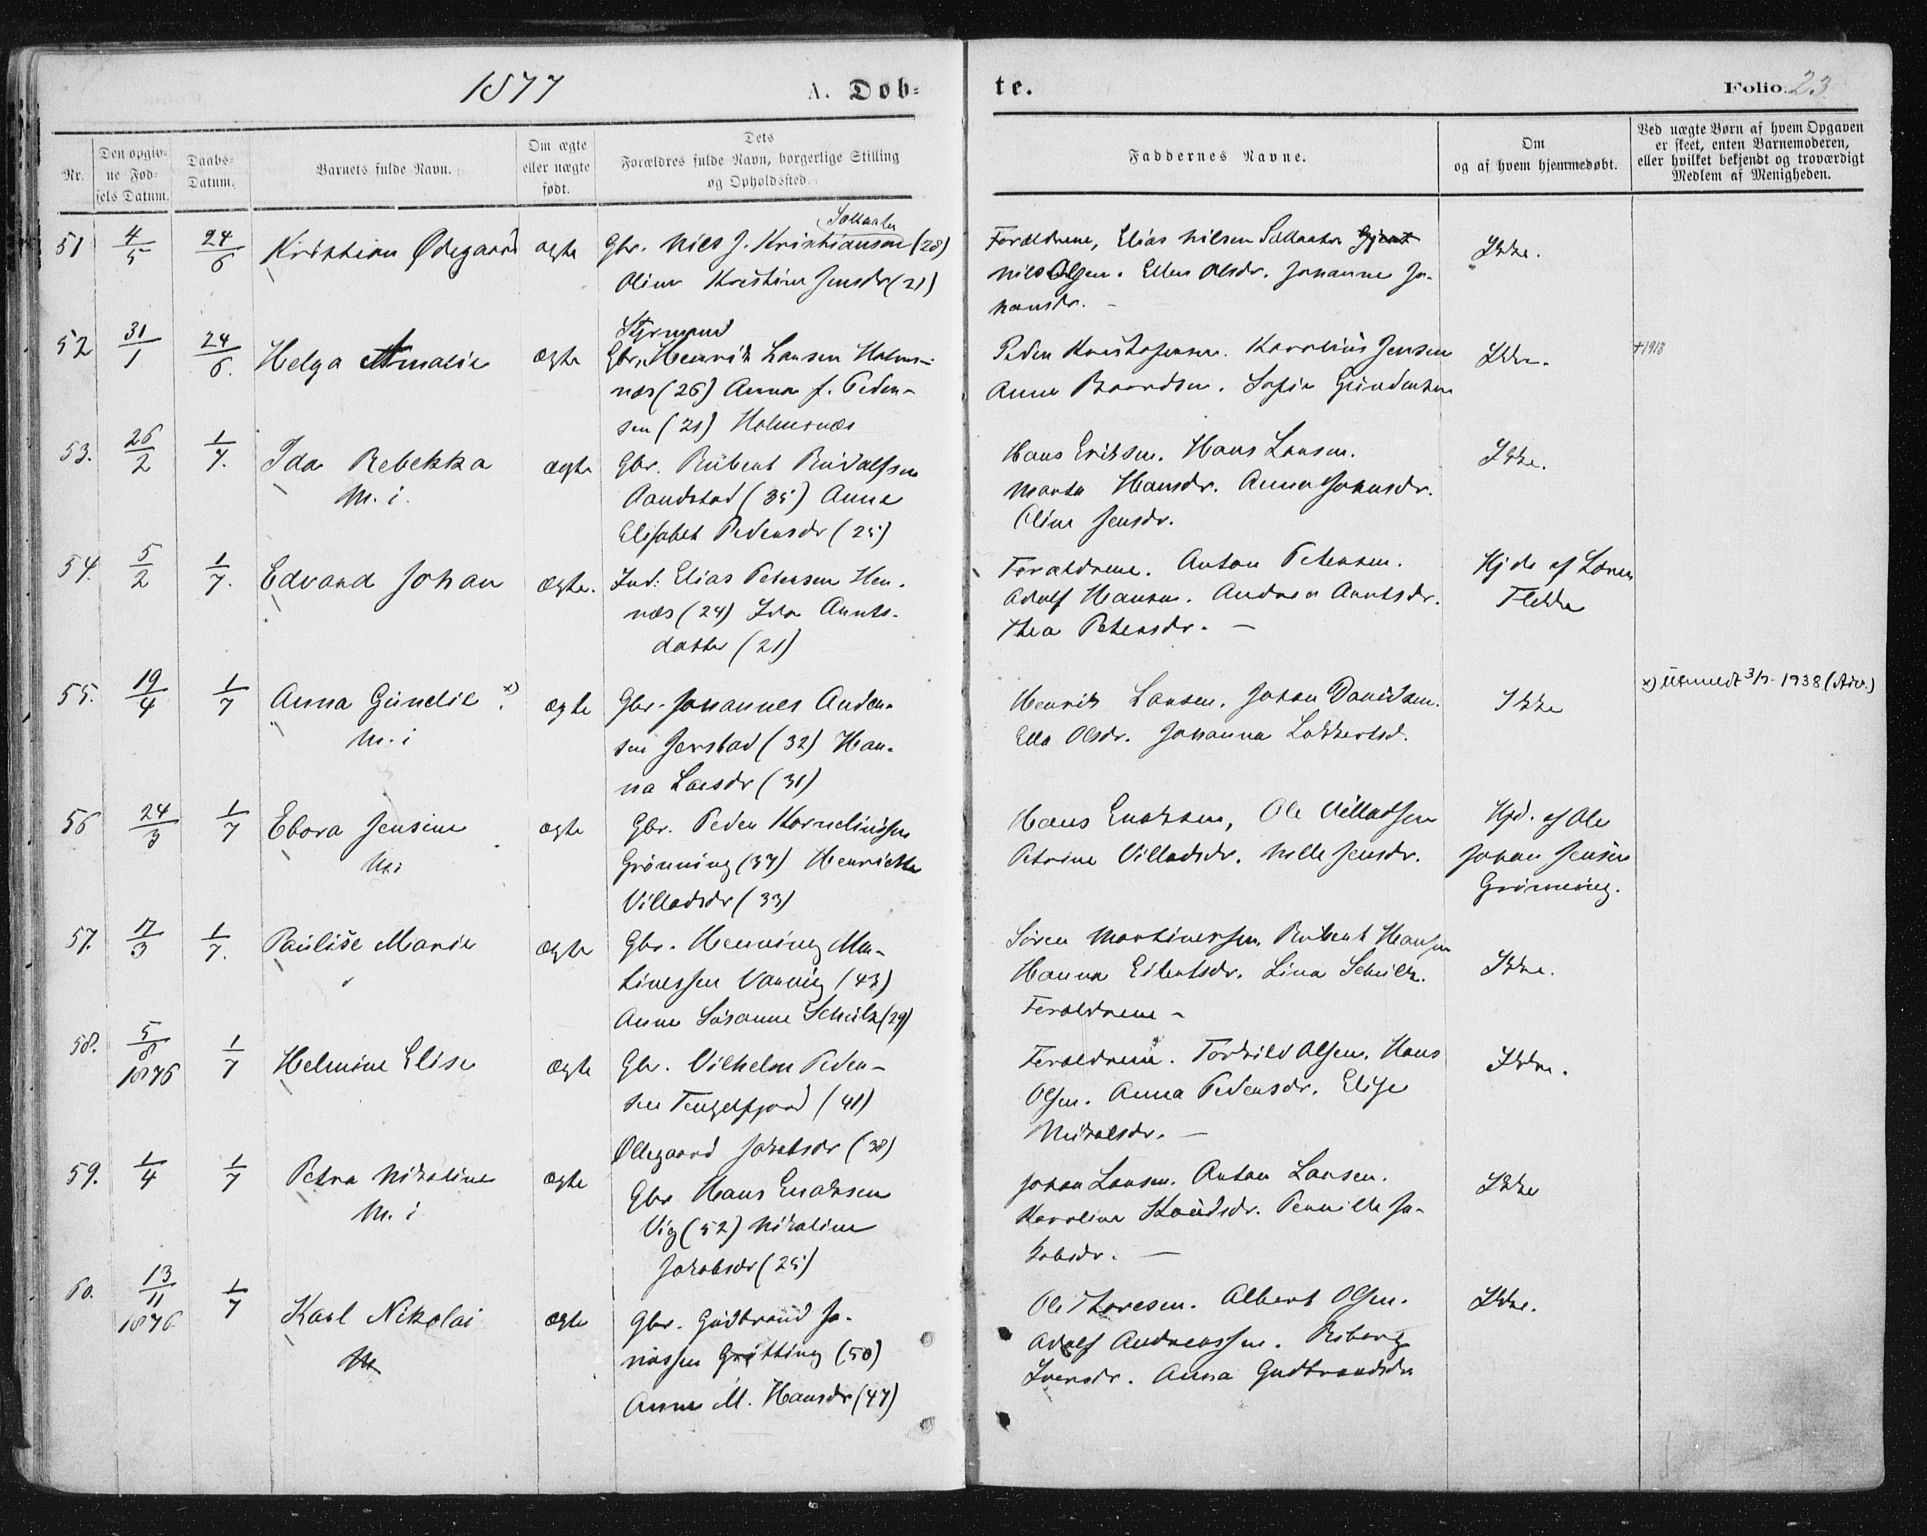 1877
A. Døb-
te.
Folio 23
Nr.
Den opgiv-
ne Fød-
sels Datum.
Daabs-
Datum.
Barnets fulde Navn.
Om ægte
eller uægte
født.
Dets
Forældres fulde Navn, borgerlige Stilling
og Opholdssted.
Faddernes Navne.
Om
og af hvem hjemmedøbt.
Ved uægte Børn af hvem Opgaven
er skeet, enten Barnemoderen,
eller hvilket bekjendt og troværdigt
Medlem af Menigheden.
51 4/5 24/6 Kristian Ødegaard ægte
Gbr. Nils J. Kristiansen (28)
Oline Kristine Jensdr (21)
Forældrene, Elias Nilsen
Nils Olsen. Ellen Olsdr. Johanne Jo-
hansdr. -
Ikke.
52 31/1 24/6. Helga Amalie ægte
Styrmand
Gbr. Henrik Larsen Holms-
næs (26) Anna J. Peder-
sen (21) Holmsnæs
Peder Kristofersen. Karolius Jensen
Anna Baardsen. Sofie Gundersen
Ikke.
+1913
53. 26/2 1/7. Ida Rebekka ægte
M. i.
Gbr. Rubert Rudolfsen
Aandstad (35) Anna
Elisabet Pedersdr (25)
Hans Eriksen. Hans Larsen.
Marta Hansdr. Anna Johnsdr.
Oline Jensdr.
Ikke.
54. 5/2 1/7. Edvard Johan ægte.
Ind. Elias Petersen Hen-
næs (24) Ida Arnts-
datter (21)
Forældrene. Anton Petersen.
Adolf Hansen. Andrea Arntsdr.
Thea Petersdr. -
Hjd. af Lærer
Flekke
55. 19/4 1/7 Anna Gundie x) ægte
M. i
Gbr. Johannes Ander-
sen Jerstad (32) Han-
na Larsdr (31)
Henrik Larsen. Johan Davidsen.
Ella Olsdr. Johanna
Ikke
x) Utmeldt 3/7-1938 (Adv.)
56 24/3 1/7 Ebora Jensine ægte
M. i
Gbr. Peder Korneliussen
Grønning (37) Henrikke
Villadsdr (33)
Hans Enoksen, Ole Villadsen
Petrine Villadsdr. Nille Jensdr.
Hjd. af Ole
Johan Jensen
Grønning.
57. 17/3 1/7. Paulise Marie ægte
Gbr. Henning Mar-
tinessen Vanvig (43)
Anna Susanne Schulz (29)
Søren Martinessen. Rubert Hansen
Hanna Eilertsdr. Lina Schulz.
Forældrene -
Ikke.
58. 5/8 1876 1/7 Helmine Elise ægte
Gbr. Vilhelm Peder-
sen Tengelfjord (41)
Øllegaard Jakobsdr (38)
Forældrene. Torkild Olsen. Hans
Olsen. Anna Pedersdr. Elise
Nikolsdr. -
Ikke.
59. 1/4 1/7 Petra Nikoline ægte
M. i
Gbr Hans Enoksen
Vig (52) Nikoline
Jakobsdr (25)
Johan Larsen. Anton Larsen.
Karoline Knudsdr. Pernille Ja-
kobsdr. -
Ikke
60. 13/11 1876 1/7 Karl Nikolai ægte
M
Gbr. Gudbrand Jo-
nassen Grøtting (50)
Anne M. Hansdr (47)
Ole Thoresen. Albert Olsen.
Adolf Andreassen. Roberg
Iversdr. Anna Gudbrandsdr
Ikke.